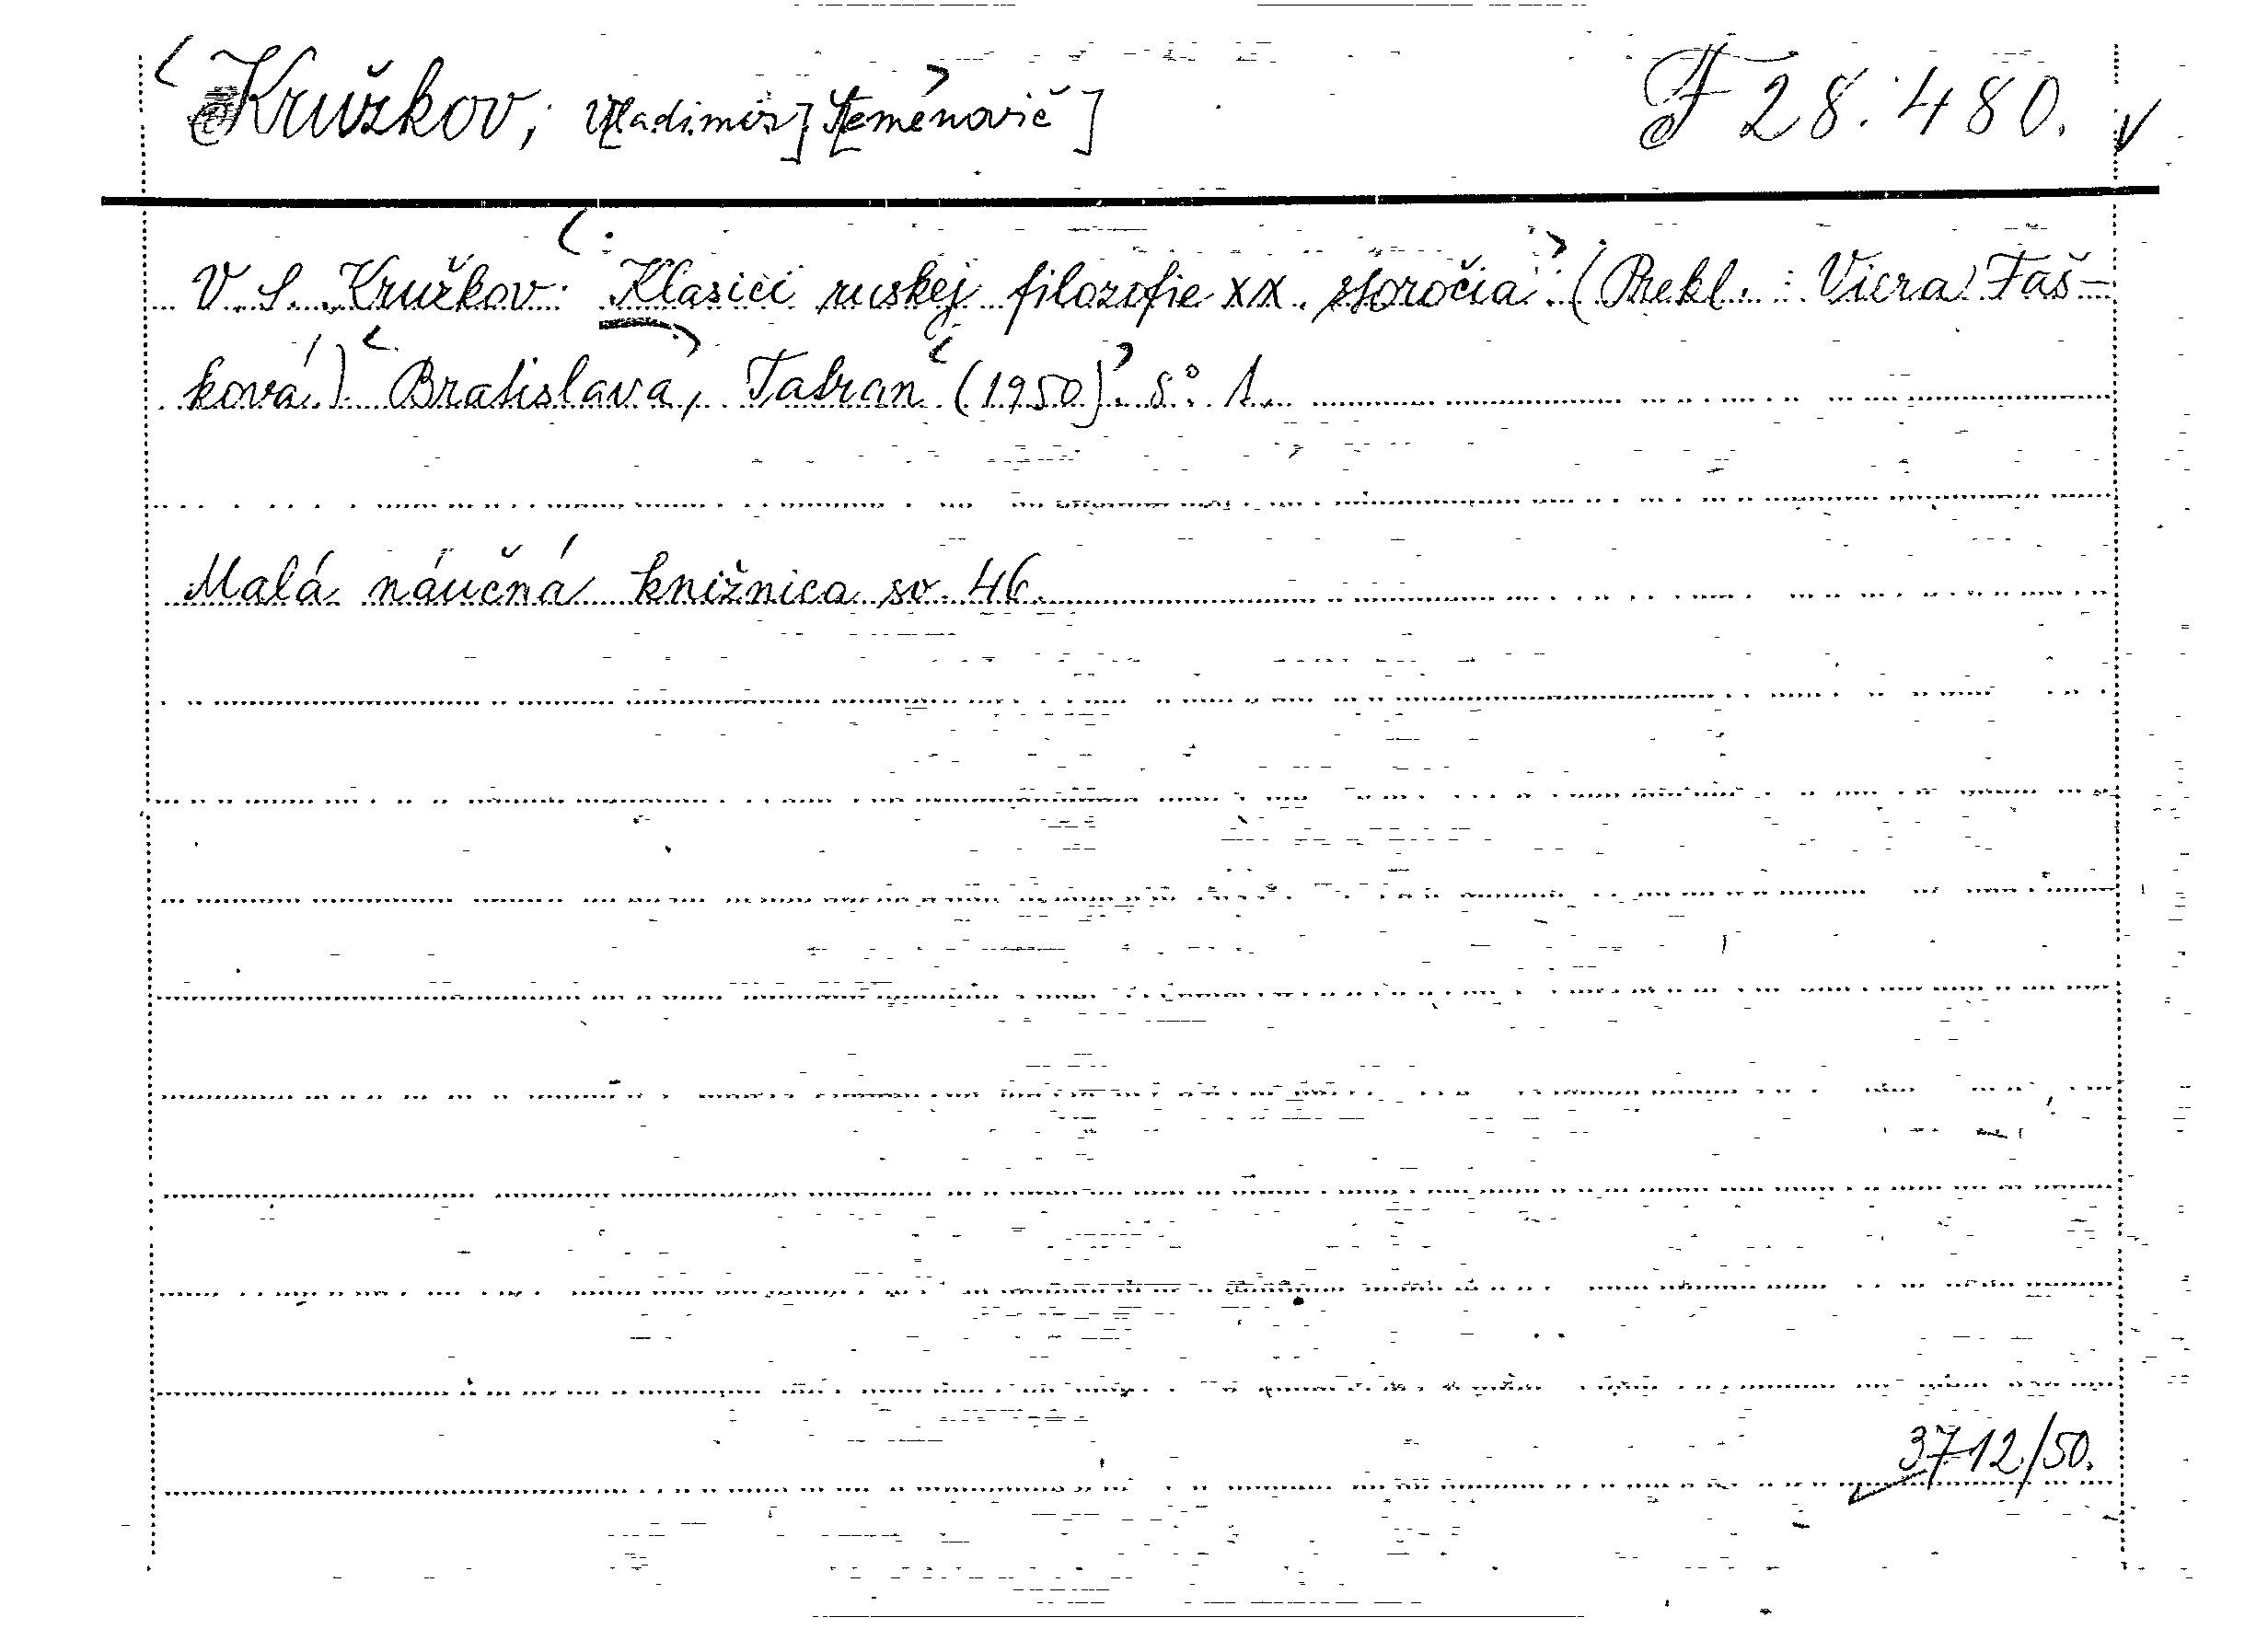 Kružkov, V[ladimir] S[eménovič] F 28.480.
V. S. Kružkov: Klasici ruskej filozofie XX. storočia. (Prekl.: Viera Faš-
ková.) Bratislava, Tatran (1950). 8° 1.
Malá náučná knižnica sv. 46.
3712/50.